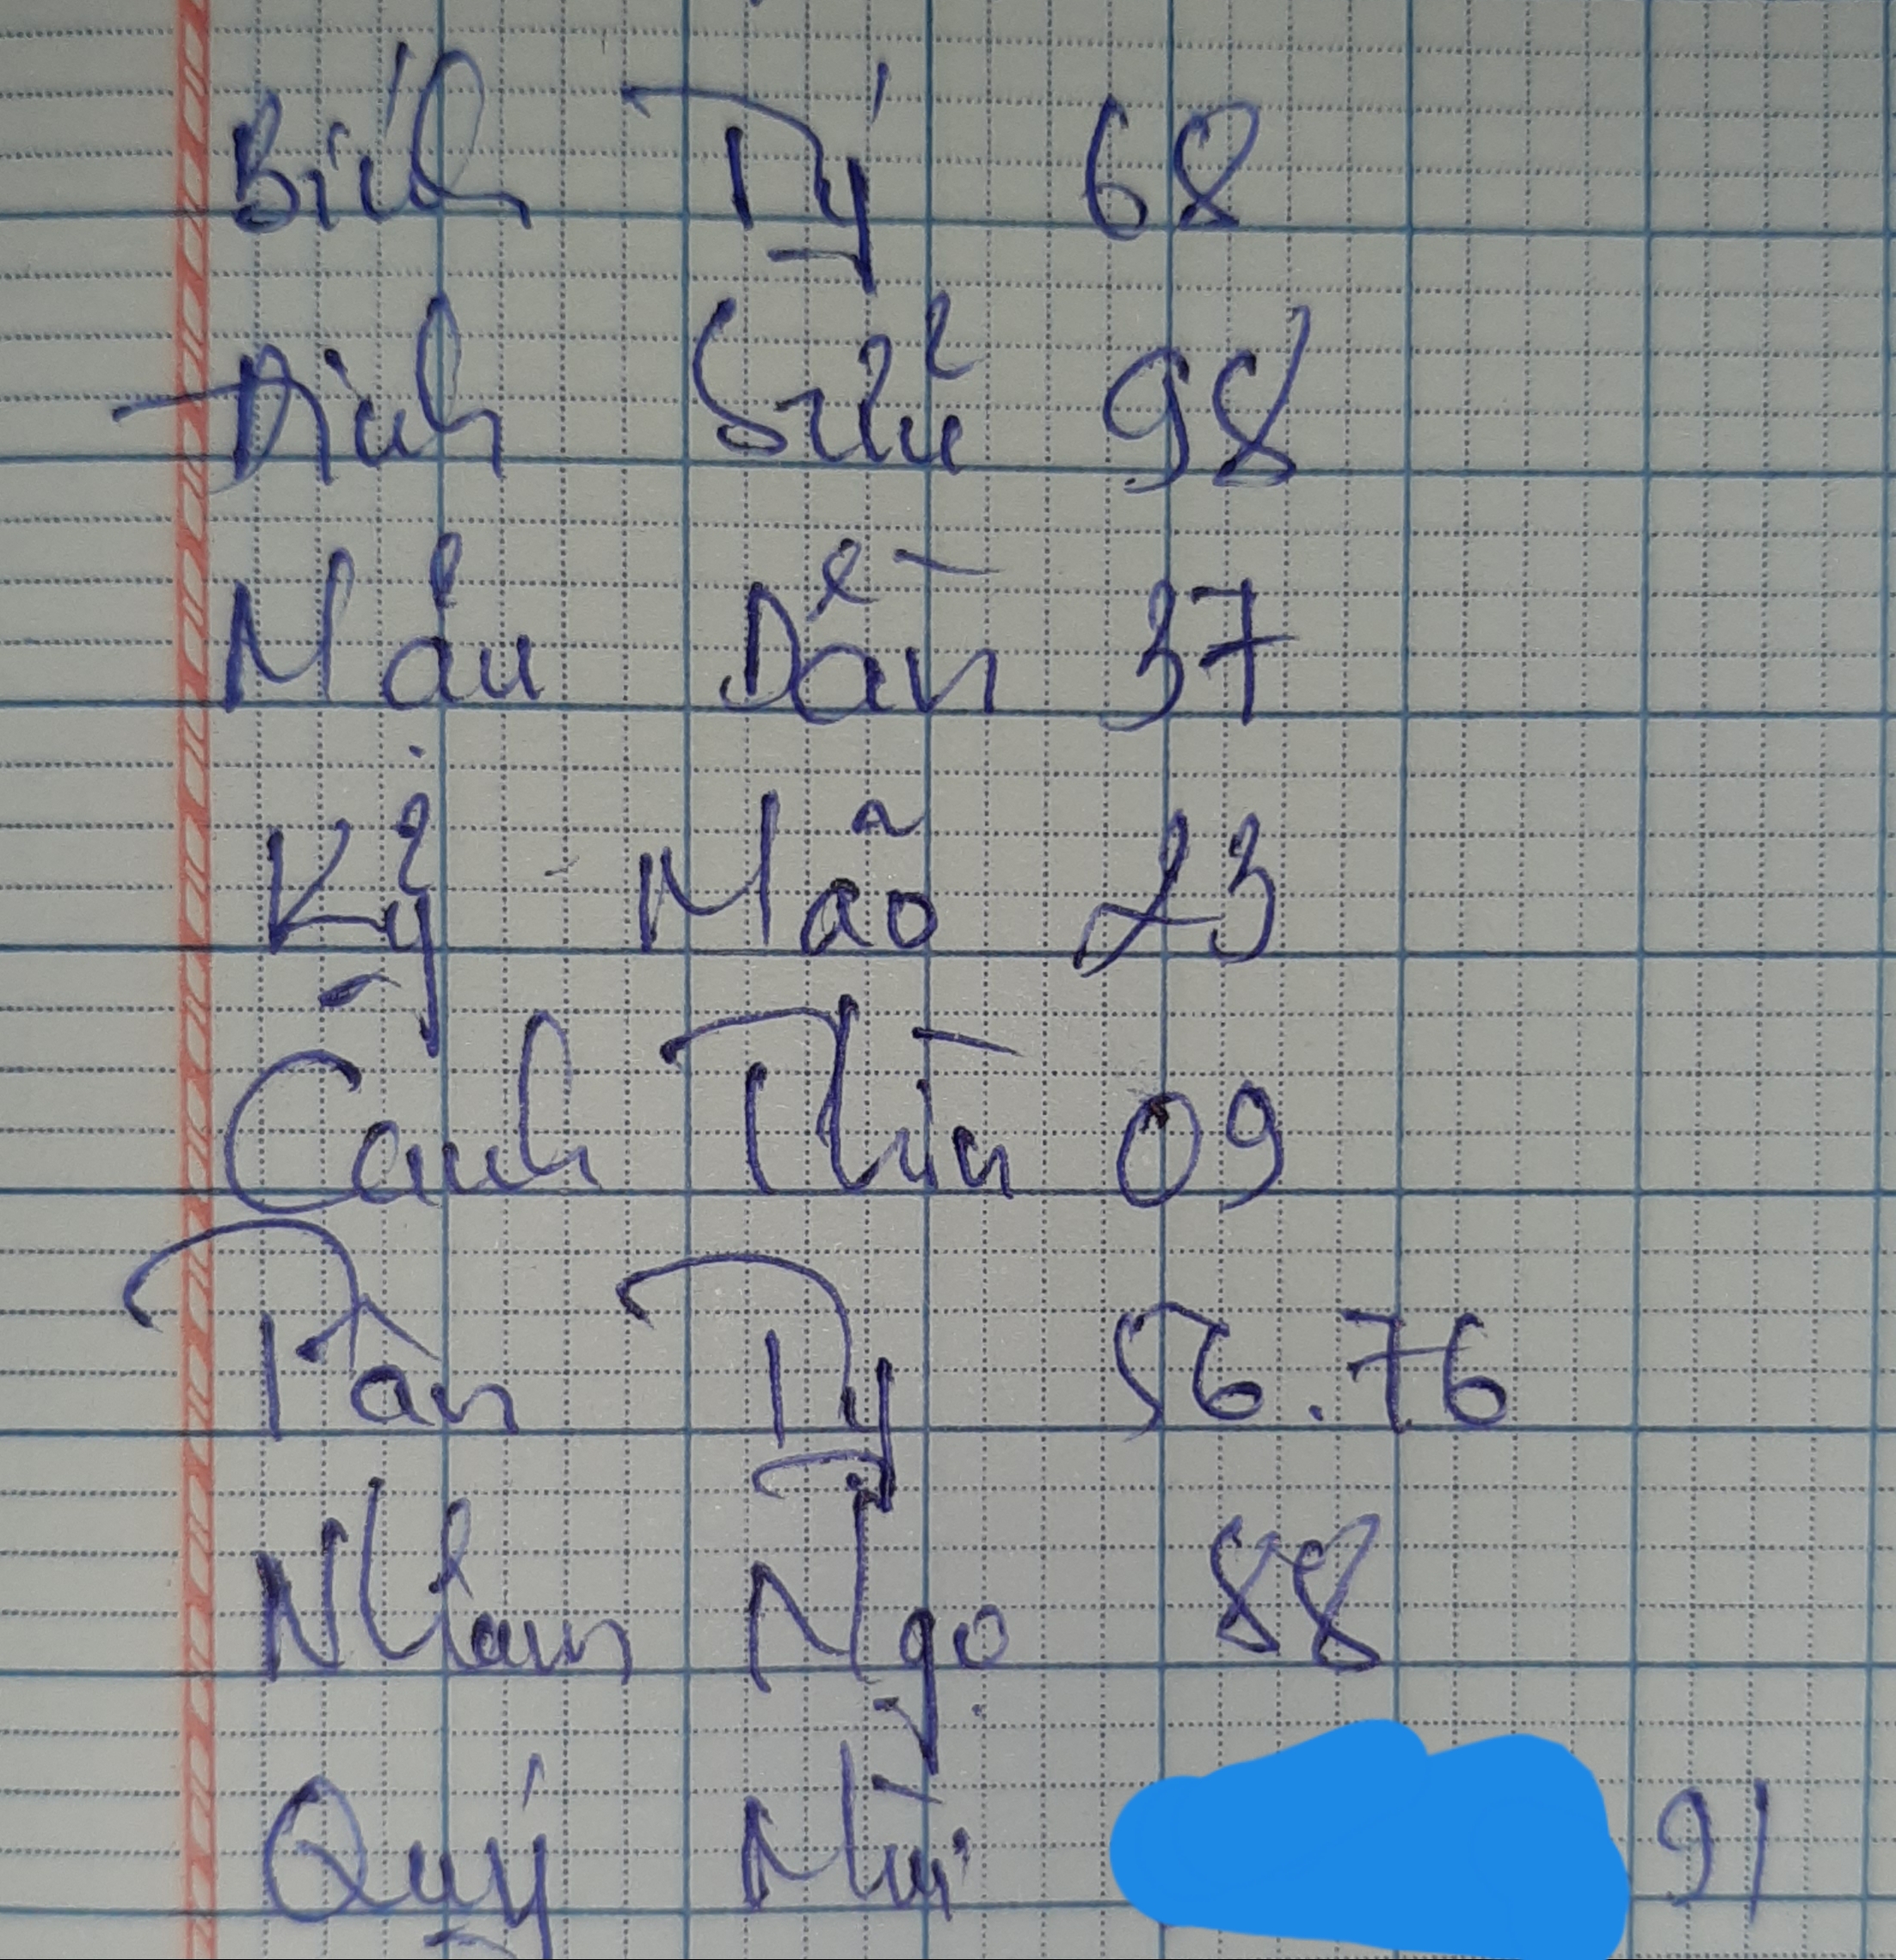 Bính Tý 68
Đinh Sửu 98
Mậu Dần 37
Kỷ Mão 23
Canh Thìn 09
Tân Tỵ 56.76
Nhâm Ngọ 88
Quý Mùi 91